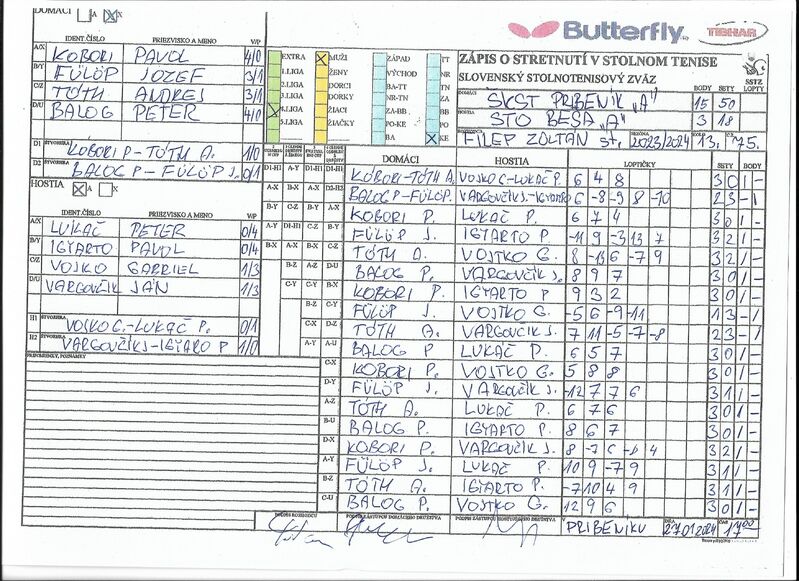 DOMÁCI A X
IDENT.ČÍSLO PRIEZVISKO A MENO V/P
A/X KOBORI PAVOL 4/0
B/Y FÜLÖP JOZEF 3/1
C/Z TÓTH ANDREJ 3/1
D/U BALOG PETER 4/0
D1 ŠTVORHRA KOBORI P-TÓTH A. 1/0
D2 ŠTVORHRA BALOG P-FÜLÖP J. 0/1
HOSTIA A X
IDENT.ČÍSLO PRIEZVISKO A MENO V/P
A/X LUKAČ PETER 0/4
B/Y IGYARTO PAVOL 0/4
C/Z VOJKO GABRIEL 1/3
D/U VARGOVČÍK JÁN 1/3
H1 ŠTVORHRA VOJKO G.-LUKAČ P. 0/1
H2 ŠTVORHRA VARGOVČÍK J-IGYARTO P 1/0
PRIPOMIENKY, POZNÁMKY
EXTRA MUŽI ZÁPAD TT
1.LIGA ŽENY VÝCHOD NR
2.LIGA DORCI BA-TT ZA
3.LIGA DORKY NR-TN BB
4.LIGA ŽIACI ZA-BB PO
5.LIGA ŽIAČKY PO-KE
BA KE
Butterfly TIBHAR
ZÁPIS O STRETNUTÍ V STOLNOM TENISE
SLOVENSKÝ STOLNOTENISOVÝ ZVÄZ
SSTZ
BODY SETY LOPTY
DOMÁCI ŠKST PRIBENÍK "A" 15 50
HOSTIA STO BEŠA "A" 3 18
FILEP ZOLTÁN st. SEZÓNA 2023/2024 13. 75.
DOMÁCI HOSTIA LOPTIČKY SETY BODY
D1-H1 KOBORI-TÓTH A. VOJKO G-LUKAČ P. 6 4 8 3 0 1 -
BALOG P-FÜLÖP J. VARGOVČÍK J.-IGYARTO 6 -8 -9 8 -10 2 3 - 1
KOBORI P. LUKAČ P. 6 7 4 3 0 1 -
FÜLÖP J. IGYARTO P. -11 9 -3 13 7 3 2 1 -
TÓTH A. VOJTKO G. 8 -13 6 -7 9 3 2 1 -
BALOG P. VARGOVČÍK J. 8 9 7 3 0 1 -
KOBORI P. IGYARTO P 9 3 2 3 0 1 -
FÜLÖP J. VOJTKO G. -5 6 -9 -11 1 3 - 1
TÓTH A. VARGOVČÍK J. 7 11 -5 -7 -8 2 3 - 1
BALOG P LUKAČ P. 6 5 7 3 0 1 -
C-X KOBORI P. VOJTKO G. 5 8 8 3 0 1 -
D-Y FÜLÖP J. VARGOVČÍK J. -12 7 7 6 3 1 1 -
A-Z TÓTH A. LUKAČ P. 6 7 6 3 0 1 -
B-U BALOG P. IGYARTO P. 8 6 7 3 0 1 -
D-X KOBORI P. VARGOVČÍK J. 8 -7 4 3 2 1 -
A-Y FÜLÖP J. LUKAČ P. 10 9 -7 9 3 1 1 -
B-Z TÓTH A. IGYARTO P. -7 10 4 9 3 1 1 -
C-U BALOG P. VOJTKO G. 12 9 6 3 0 1 -
PODPIS ROZHODCU PODPIS ZÁSTUPCU DOMÁCEHO DRUŽSTVA PODPIS ZÁSTUPCU HOSŤUJÚCEHO DRUŽSTVA V PRIBENÍKU DŇA 27.01.2024 ČAS 17:00